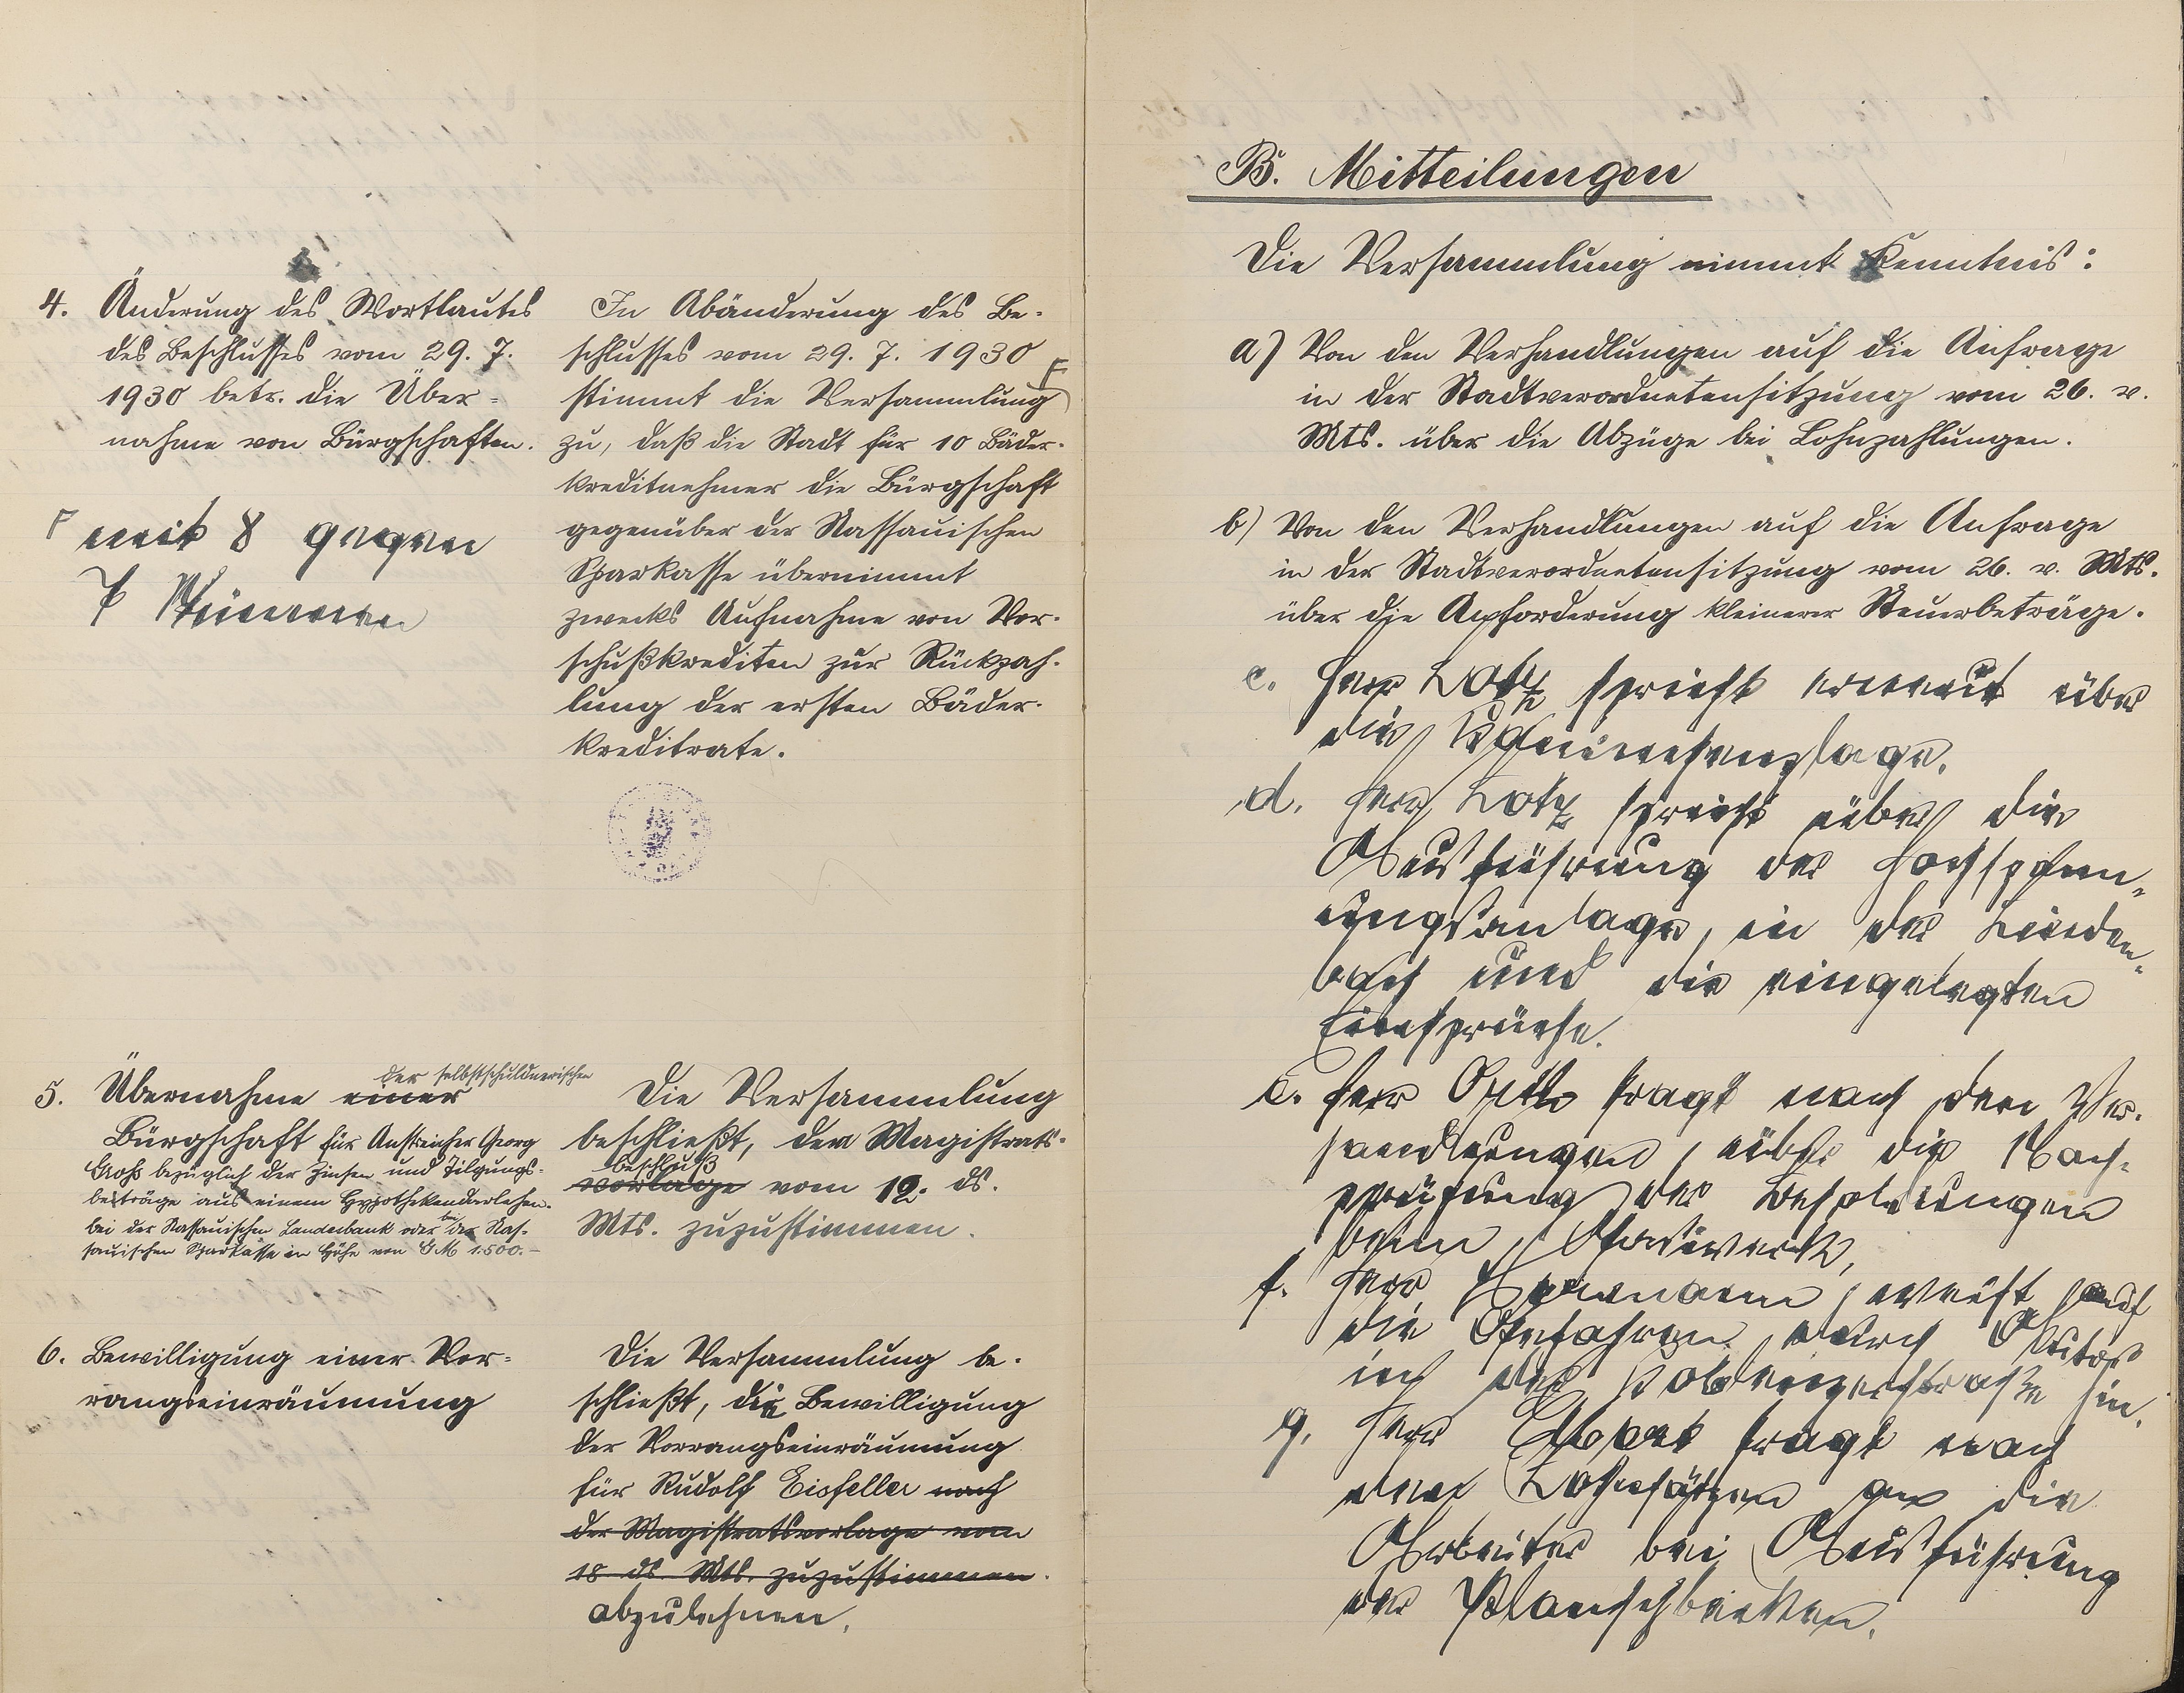 4. Änderung des Wortlautes
des Beschlusses vom 29. 7.
1930 betr. die Über=
nahme von Bürgschaften.
F mit 8 gegen
7 Stimmen
In Abänderung des Be-
schlusses vom 29. 7. 1930 F
stimmt die Versammlung
zu, daß die Stadt für 10 Bäder-
kreditnehmer die Bürgschaft
gegenüber der Nassauischen
Sparkasse übernimmt
zwecks Aufnahme von Vor-
schußkrediten zur Rückzah-
lung der ersten Bäder-
kreditrate.
5. Übernahme einer der selbstschuldnerischen
Bürgschaft für Anstreicher Georg
bezüglich der Zinsen und Tilgungs-
beträge aus einem Hypothekendarlehen
bei der Nassauischen Landesbank oder bei der Nas-
sauischen Sparkasse in Höhe von GM 1.500.-
Die Versammlung
beschließt, dem Magistrats-
beschluß
vorlage vom 12. ds.
Mts. zuzustimmen.
6. Bewilligung einer Vor=
rangseinräumung
Die Versammlung be-
schließt, die Bewilligung
der Vorrangseinräumung
für Rudolf Eisfeller nach
der Magistratsvorlage vom
18 ds. Mts. zuzustimmen.
abzulehnen.
B. Mitteilungen
Die Versammlung nimmt Kenntnis:
a) Von den Verhandlungen auf die Anfrage
in der Stadtverordnetensitzung vom 26. v.
Mts. über die Abzüge bei Lohnzahlungen.
b) Von den Verhandlungen auf die Anfrage
in der Stadtverordnetensitzung vom 26. v. Mts.
über die Anforderung kleinerer Steuerbeträge.
c. Herr Lotz spricht erneut über
die
d. Herr Lotz spricht über die
Ausführung der Hochspann-
ungsanlage in der Linden-
bach und die eingelegten
Einsprüche.
e. Herr fragt nach den Ver-
handlungen über die Nach-
prüfung der Besoldungen
beim Gaswerk,
f. Herr weist auf
die Gefahren durch Autos
in der Koblenzerstraße hin.
g. Herr fragt nach
den Lohnsätzen an die
Arbeiter bei Ausführung
der Planschbecken.